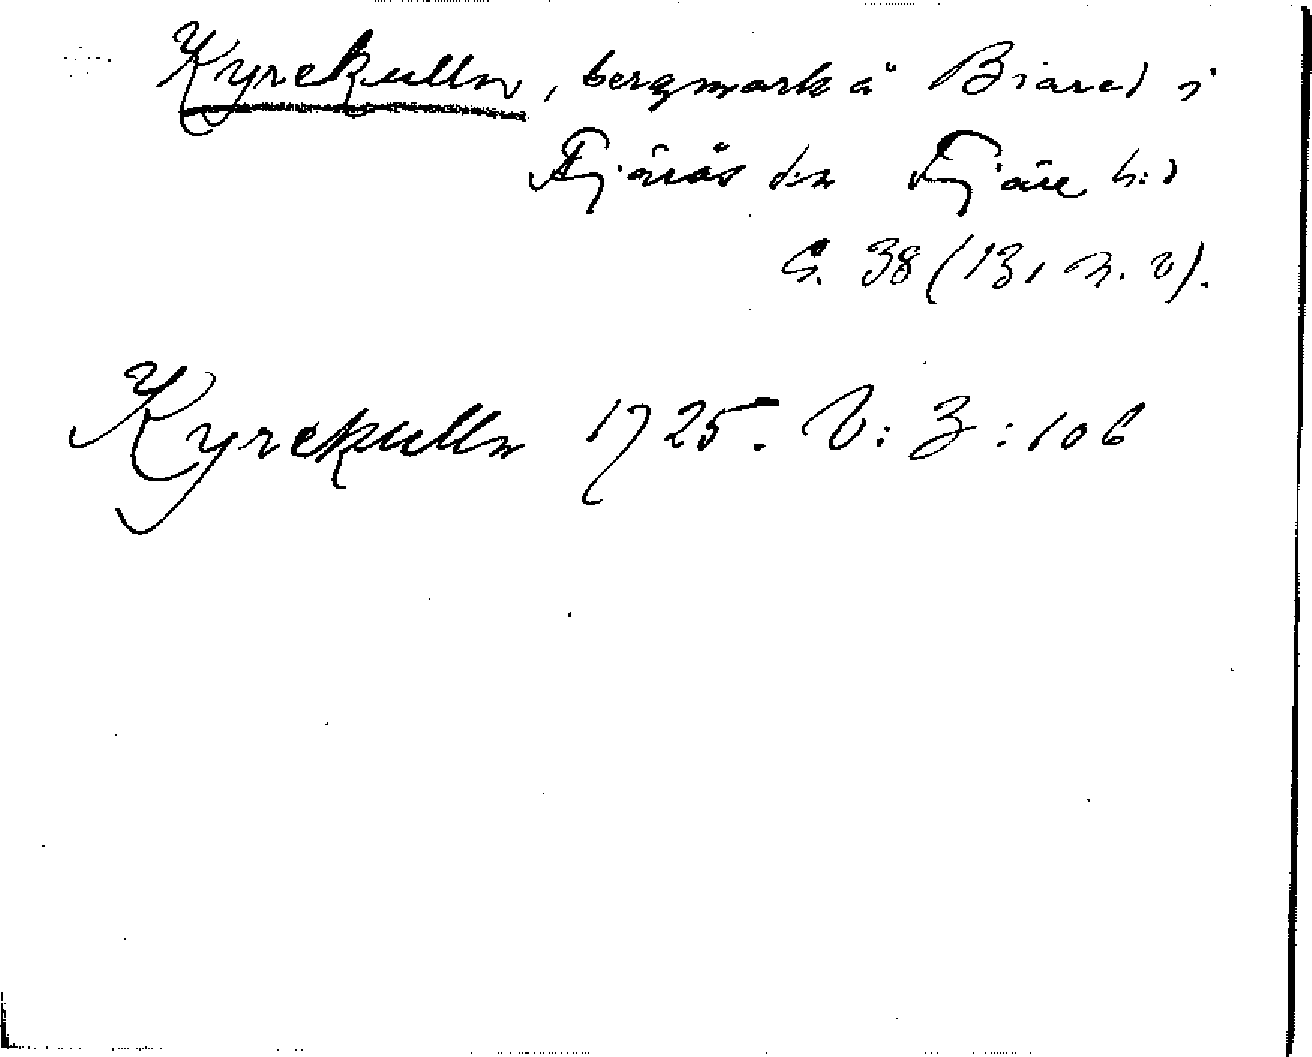 Kyrekulln, bergmark å Biared i
Fjärås s:n Fjäre h:d
G. 38 (13, n. v).
Kyrekulln 1725. V: 3:106